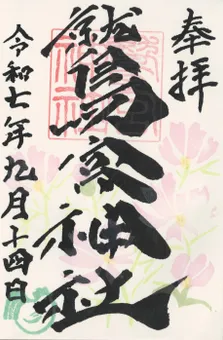 奉拝
鷲宮神社
令和七年九月十四日